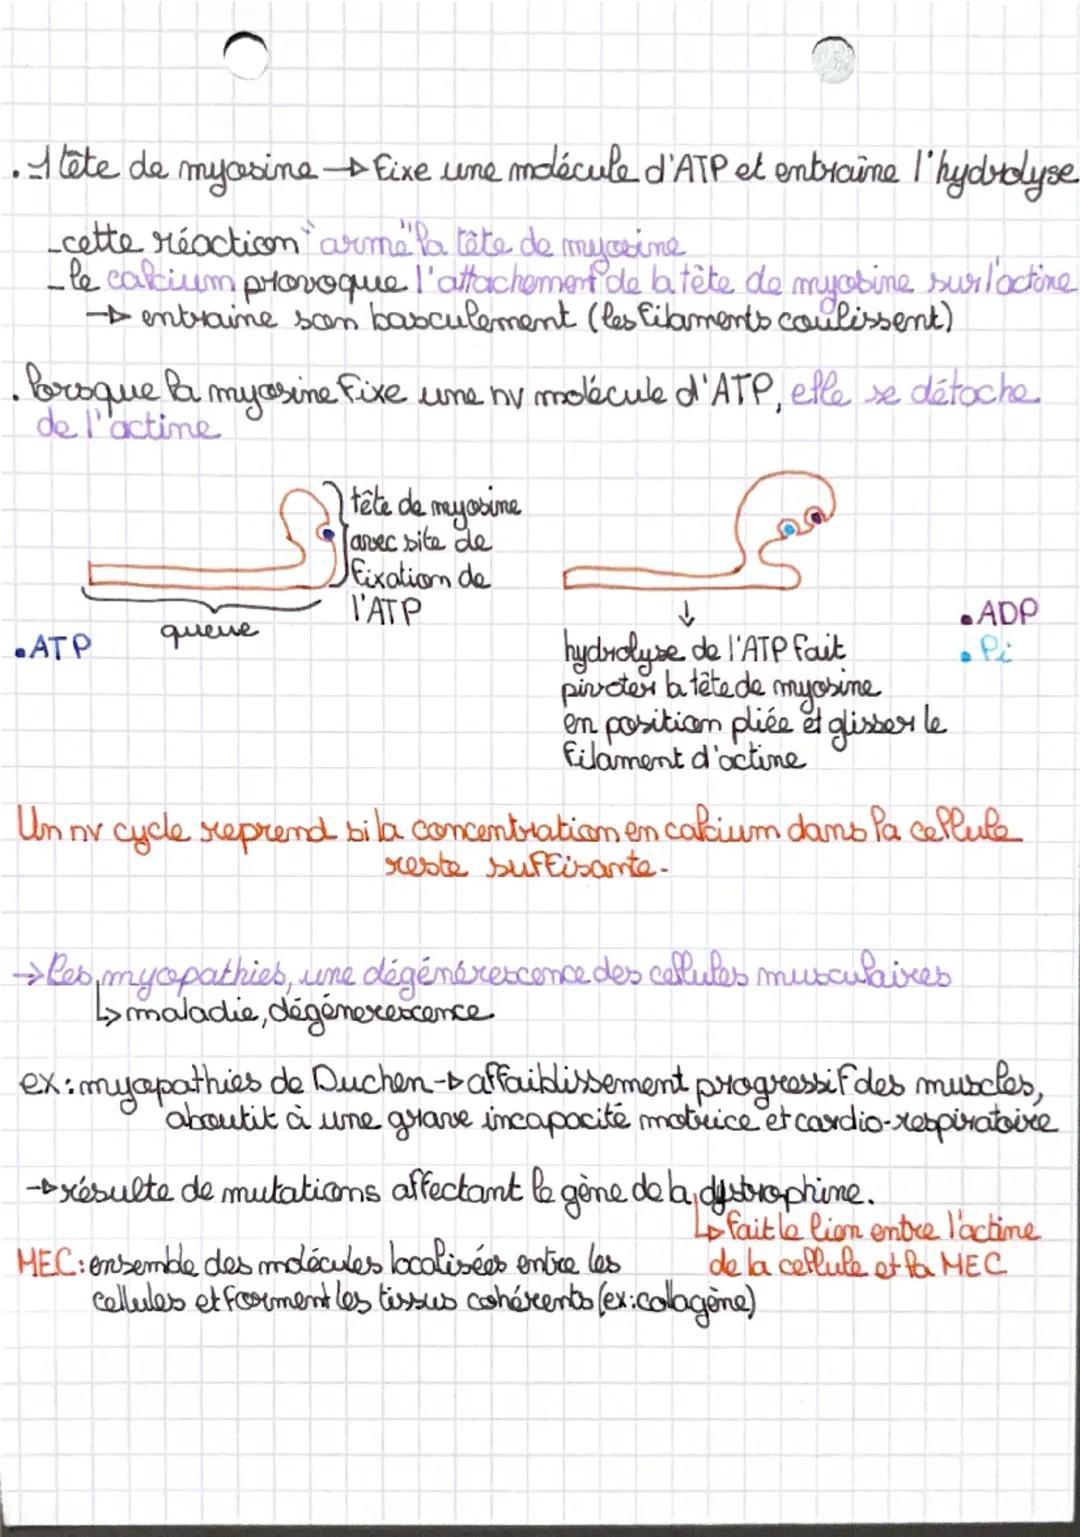 . 1 tête de myosine → fixe une molécule d'ATP et entraîne l'hydrolyse
- cette réaction "arme" la tête de myosine
- le calcium provoque l'attachement de la tête de myosine sur l'actine
→ entraine son basculement (les filaments coulissent)
. lorsque la myosine fixe une nv molécule d'ATP, elle se détache
de l'actine
tête de myosine
avec site de
fixation de
l'ATP
queue
• ATP
↓
• ADP
• Pi
hydrolyse de l'ATP fait
pivoter la tête de myosine
en position pliée et glisser le
filament d'actine
Un nv cycle reprend si la concentration en calcium dans la cellule
reste suffisante.
→ les myopathies, une dégénérescence des cellules musculaires
↳ maladie, dégénerescence
ex: myopathies de Duchen → affaiblissement progressif des muscles,
aboutit à une grave incapacité motrice et cardio-respiratoire
→ résulte de mutations affectant le gène de la dystrophine.
↳ fait le lien entre l'actine
de la cellule et la MEC
MEC: ensemble des molécules localisées entre les
cellules et forment les tissus cohérents (ex: colagène)